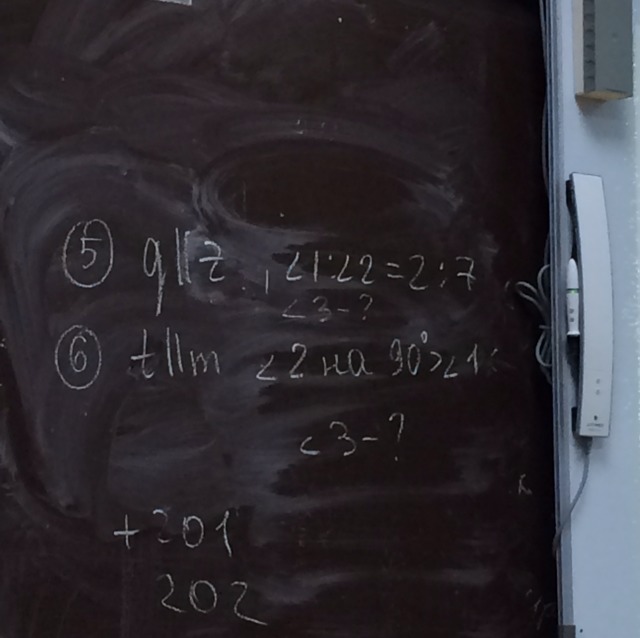 ⑤ q||z, <1:<2=2:7
<3-?
⑥ t||m <2 на 90°><1
<3-?
+201
202